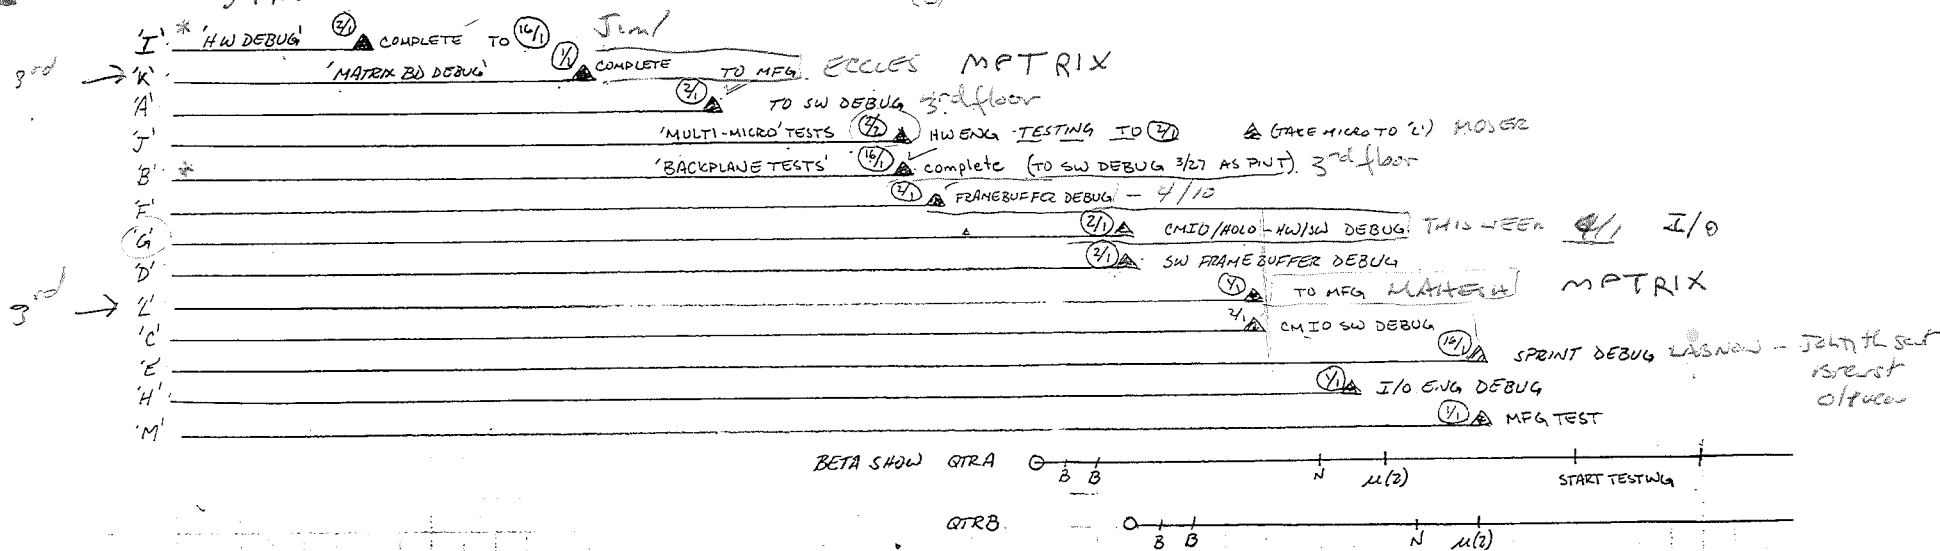 'I' * 'HW DEBUG' (2/1) COMPLETE TO (16/1) Jim/
3rd → 'K' 'MATRIX BD DEBUG' (1/1) COMPLETE TO MFG. ECCLES MPTRIX
'A' (2/1) TO SW DEBUG 3rd floor
'J' 'MULTI-MICRO' TESTS (2/2) HW ENG TESTING TO (2/1) (TAKE MICRO TO 'L') MOSER
'B' * 'BACKPLANE TESTS' (16/1) complete (TO SW DEBUG 3/27 AS PLNT). 3rd floor
'F' (2/1) FRAMEBUFFER DEBUG - 4/10
'G' (2/1) CMIO/HOLO - HW/SW DEBUG THIS WEEK 4/1 I/O
'D' (2/1) SW FRAMEBUFFER DEBUG
3rd → 'L' (1/1) TO MFG MAHESH MPTRIX
'C' 2/1 CMIO SW DEBUG
'E' (16/1) SPRINT DEBUG
'H' (1/1) I/O ENG DEBUG
'M' (1/1) MFG TEST
BETA SHOW QTRA B B N µ(2) START TESTING
QTRB B B N µ(2)